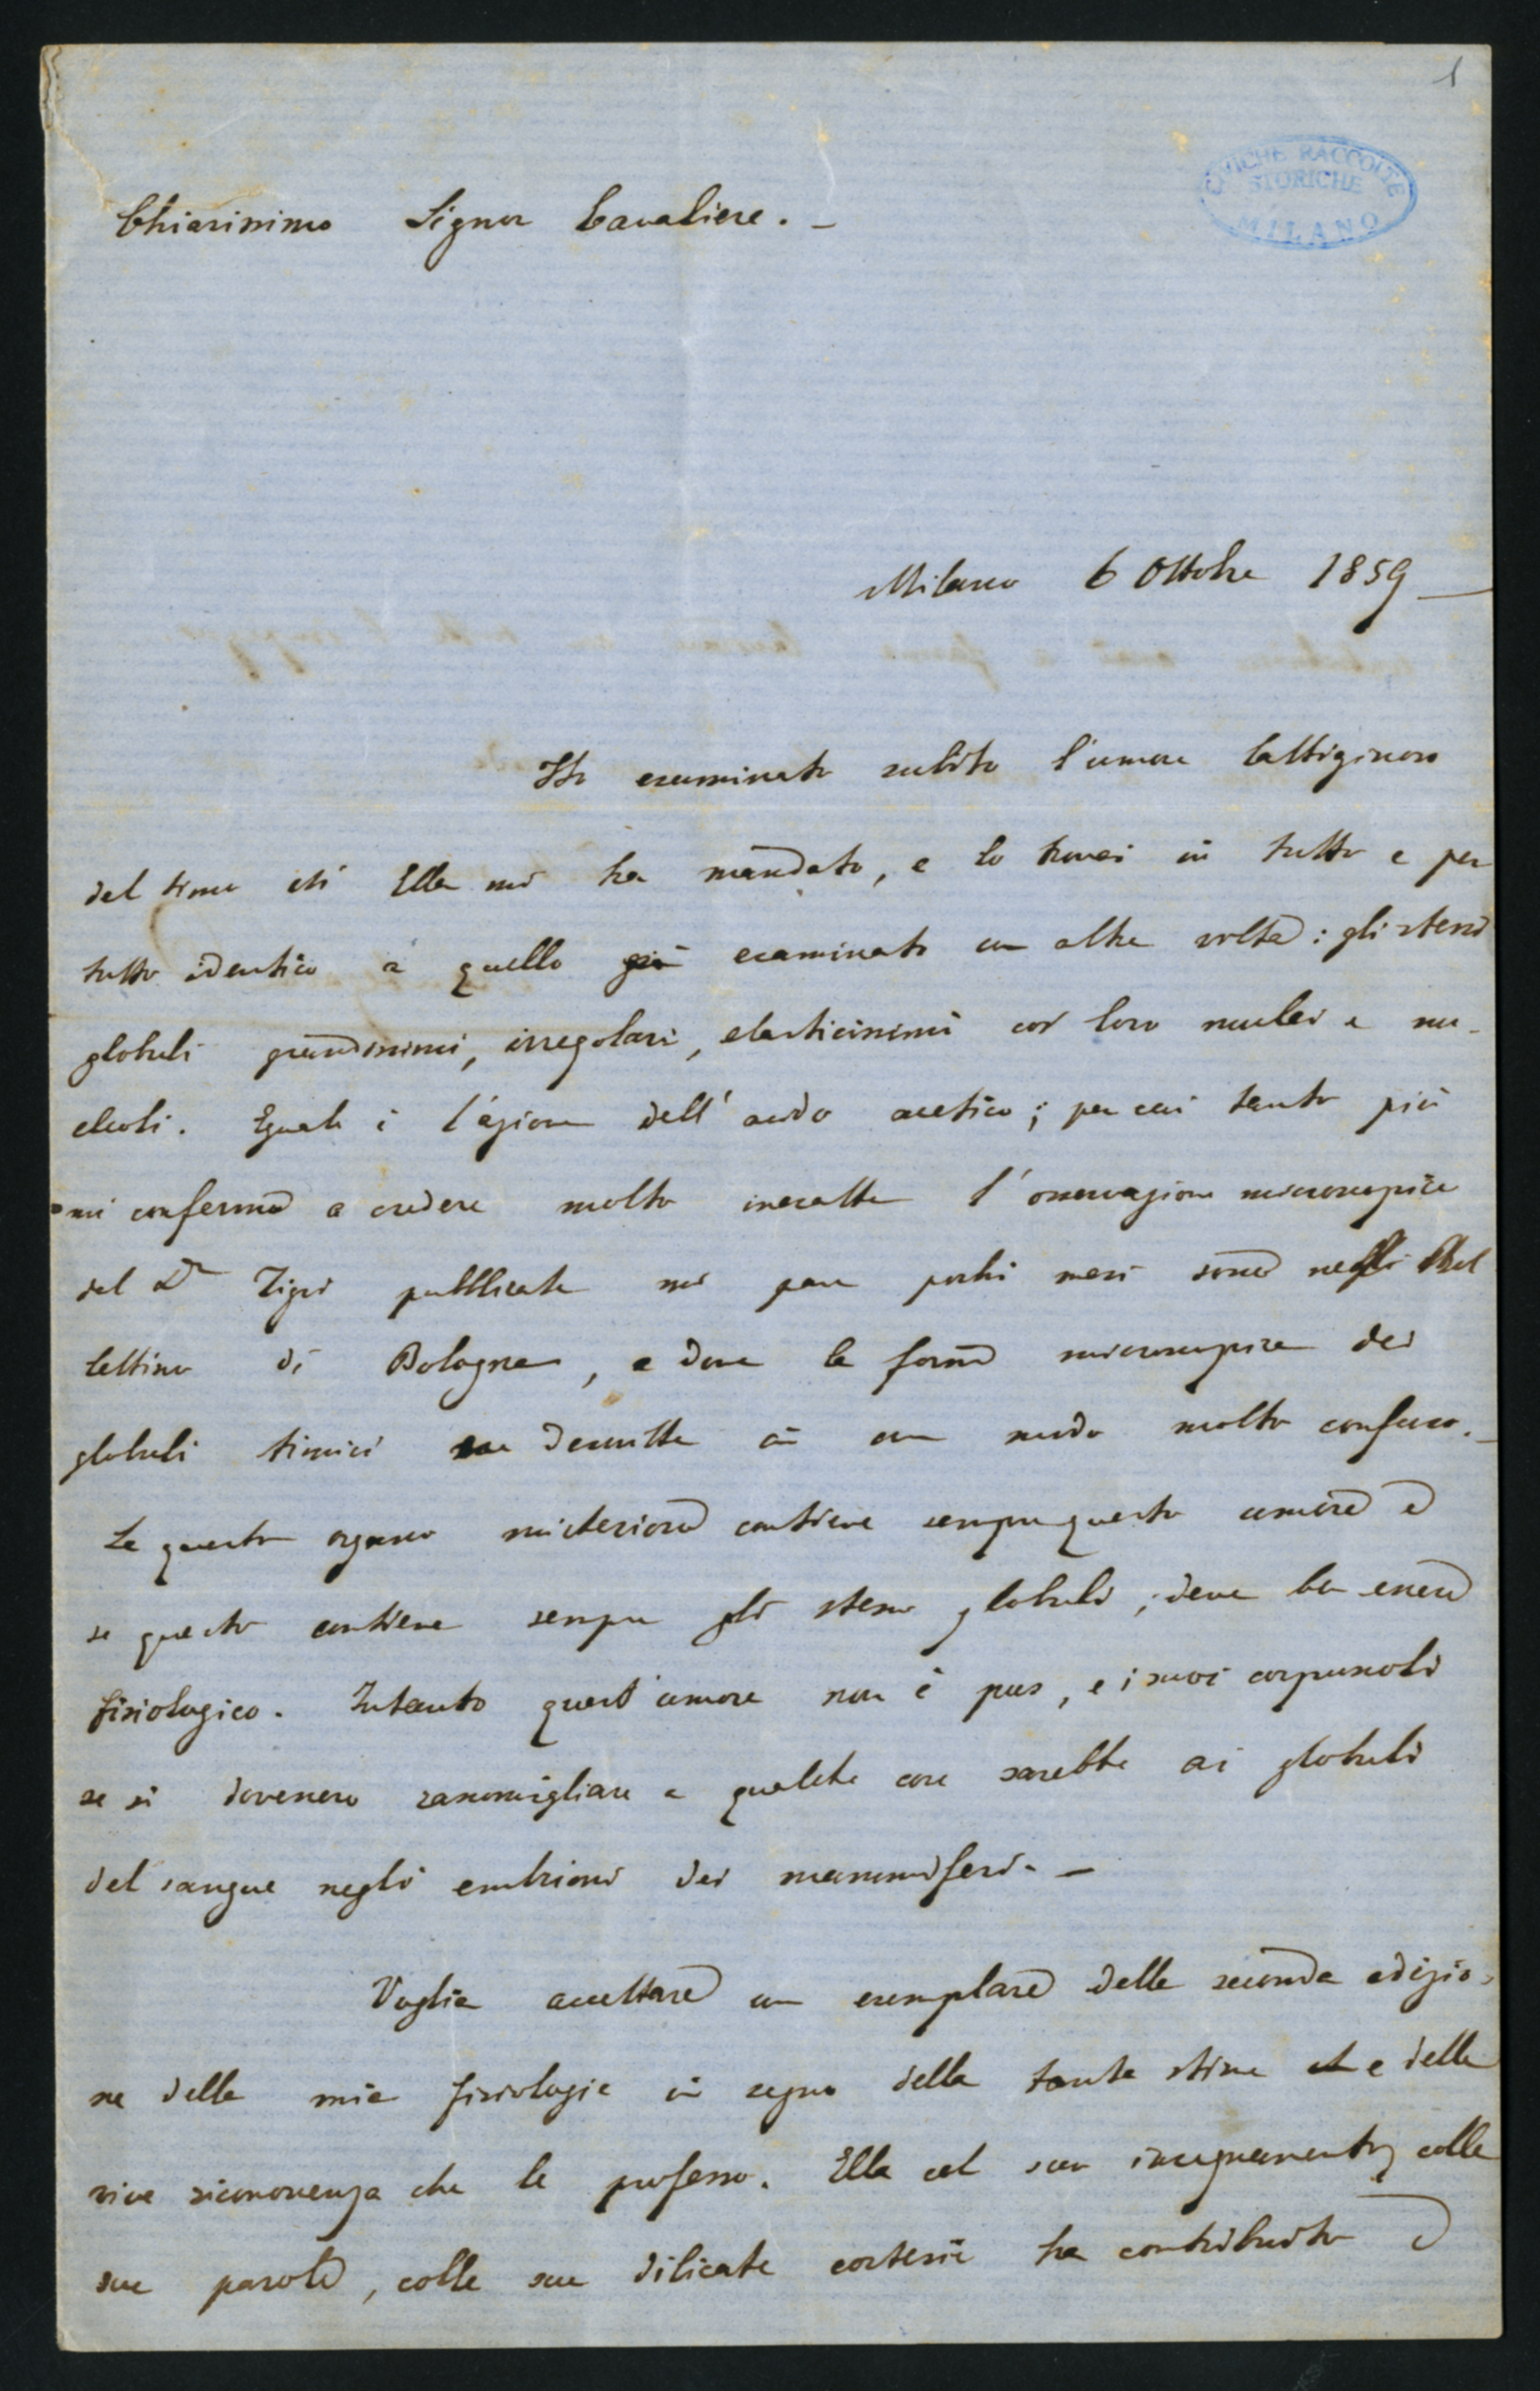 1
CIVICHE RACCOLTE
STORICHE
MILANO
Chiarissimo Signor Cavaliere. –
Milano 6 Ottobre 1859 –
Ho esaminato subito l'umore lattiginoso
del timo ch'Ella mi ha mandato, e lo trovai in tutto e per
tutto identico a quello già esaminato un altra volta: gli stessi
globuli grandissimi, irregolari, elasticissimi coi loro nuclei e nu-
cleoli. Eguale è l'azione dell'acido acetico; per cui tanto più
mi confermo a credere molto inesatta l'osservazione microscopica
del Dr Tigri pubblicata mi pare pochi mesi sono Bul
lettino di Bologna, e dove la forma microscopica dei
globuli timici descritta in un modo molto confuso. –
Se questo organo misterioso contiene sempre questo umore e
se questo contiene sempre gli stessi globuli, deve ben essere
fisiologico. Intanto quest'umore non è pus, e i suoi corpuscoli
se si dovessero rassomigliare a qualche cosa sarebbe ai globuli
del sangue negli embrioni dei mammiferi. –
Voglia accettare un esemplare della seconda edizio-
ne della mia fisiologia in segno della tanta stima e della
viva riconoscenza che le professo. Ella col suo insegnamento, colla
sua parola, colla sua dilicata cortesia ha contribuito a